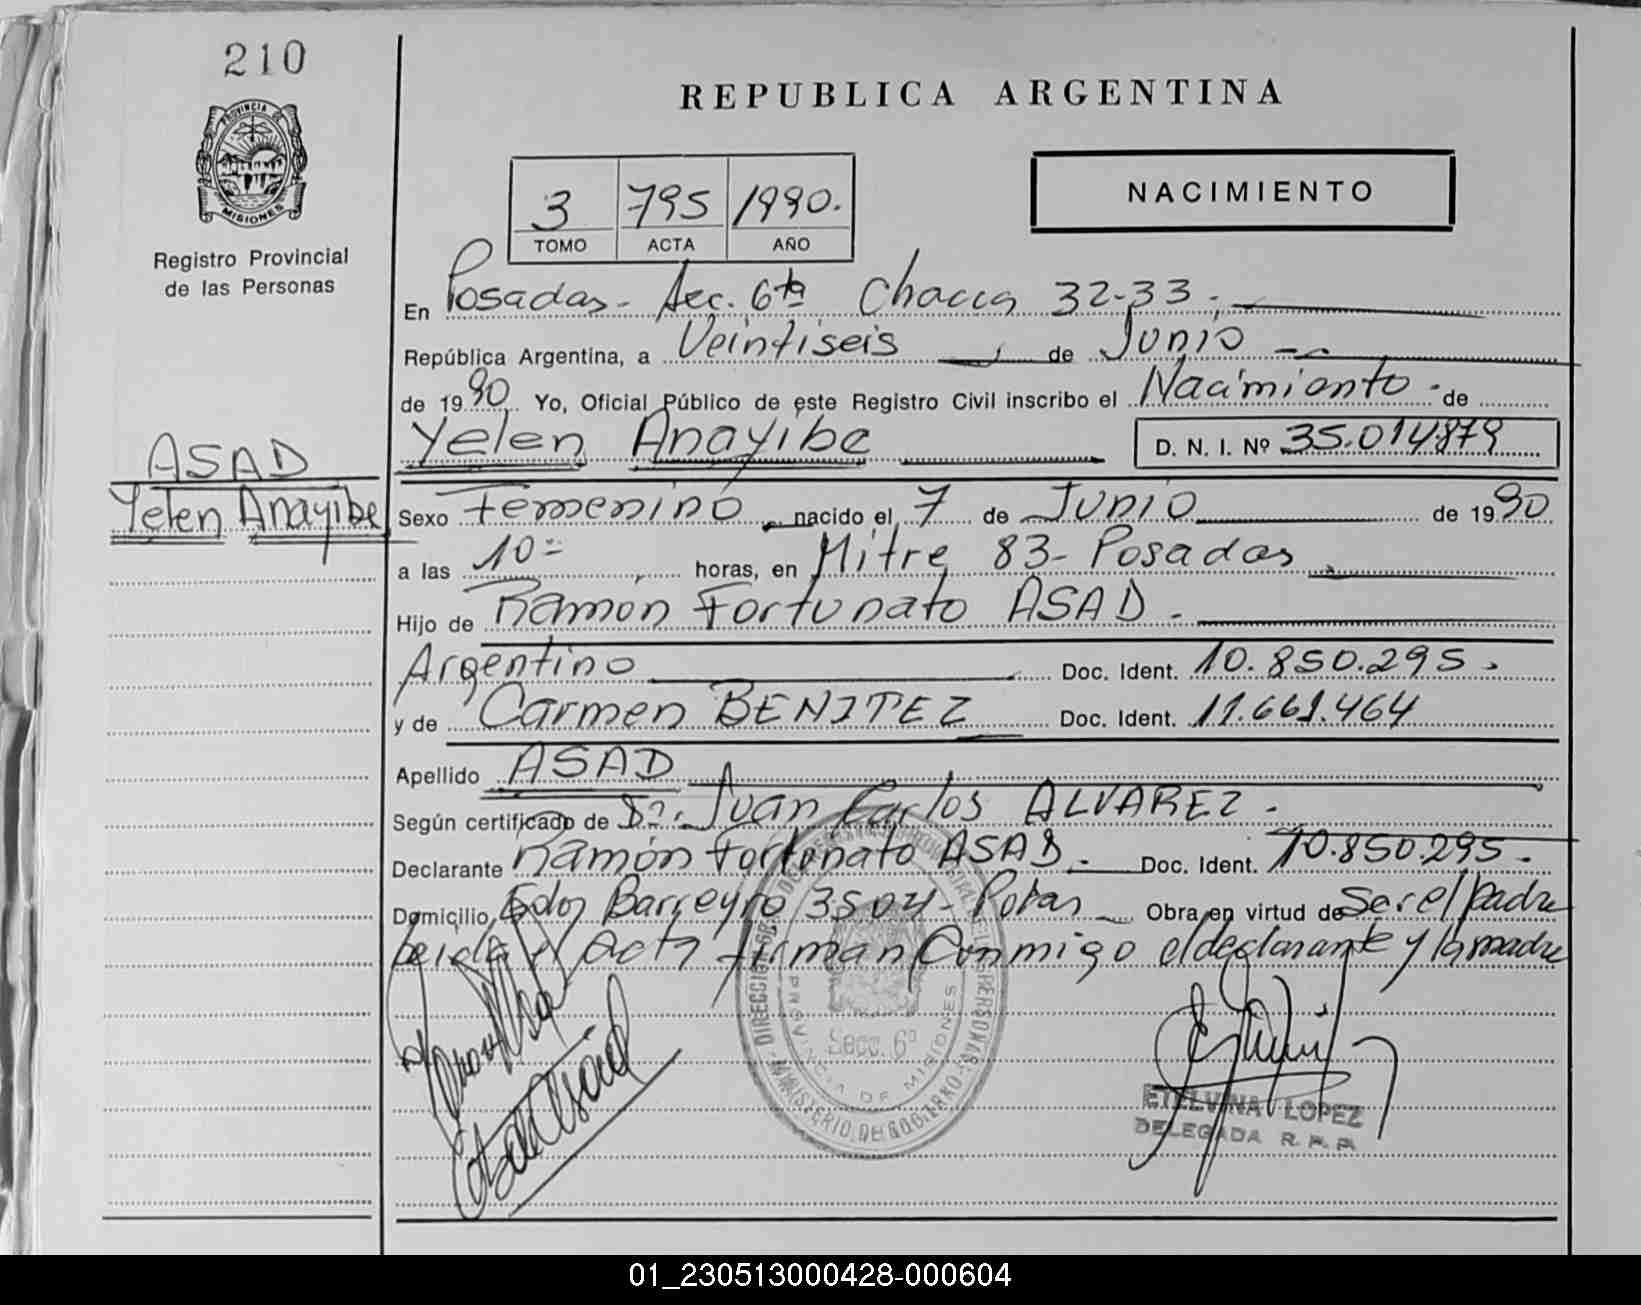 210
PROVINCIA DE
MISIONES
Registro Provincial
de las Personas
ASAD
Yelen Anayibe
REPUBLICA ARGENTINA
3 795 1990.
TOMO ACTA AÑO
NACIMIENTO
En Posadas - Sec. 6ta Chacra 32-33.
República Argentina, a Veintiseis de Junio
de 1990 Yo, Oficial Público de este Registro Civil inscribo el Nacimiento de
Yelen Anayibe D. N. I. Nº 35.014879
Sexo Femenino nacido el 7 de Junio de 1990
a las 10= horas, en Mitre 83 - Posadas
Hijo de Ramón Fortunato ASAD.
Argentino Doc. Ident. 10.850.295.
y de Carmen BENITEZ Doc. Ident. 11.661.464
Apellido ASAD
Según certificado de Dr. Juan Carlos ALVAREZ.
Declarante Ramón Fortunato ASAD. Doc. Ident. 10.850.295.
Domicilio Edos Barreyro 3504 - Posas Obra en virtud de Ser el padre
Leida el acta firman Conmigo el declarante y la madre
Secc. 6ª
PROVINCIA DE MISIONES
MINISTERIO DE GOBIERNO
ETELVINA LOPEZ
DELEGADA R. P. P.
01_230513000428-000604